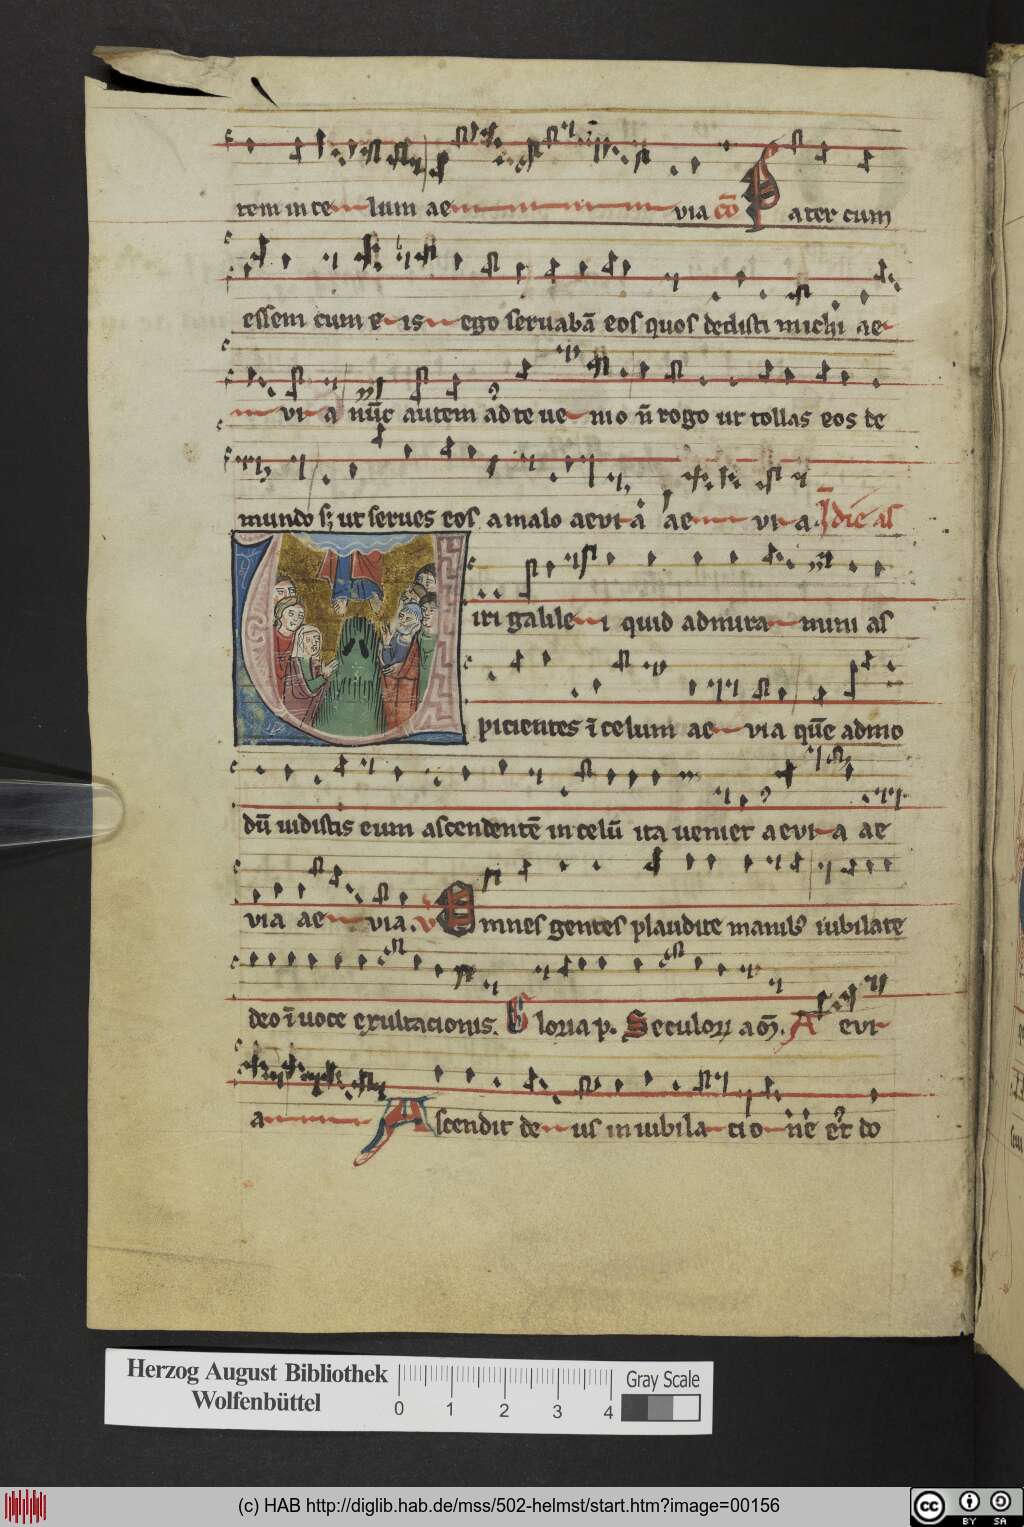 rem in ce lum ae via cō Pater cum
essem cum e is ego seruabā eos quos dedisti michi ae
vi a nūc autem ad te ue nio n̄ rogo ut tollas eos de
mundo s; ut serues eos a malo aevia ae vi a. In die as
Viri galile i quid admira mini as
picientes ī celum ae via quē admo
dū uidistis eum ascendentē in celū ita ueniet aevi a ae
via ae via. v Omnes gentes plaudite manib; iubilate
deo ī uoce exultacionis. Gloria p. Seculorꝝ am̄. A evi
a Ascendit de us in iubila ci o ne et do
Herzog August Bibliothek
Wolfenbüttel
0 1 2 3 4
Gray Scale
(c) HAB http://diglib.hab.de/mss/502-helmst/start.htm?image=00156
cc BY SA